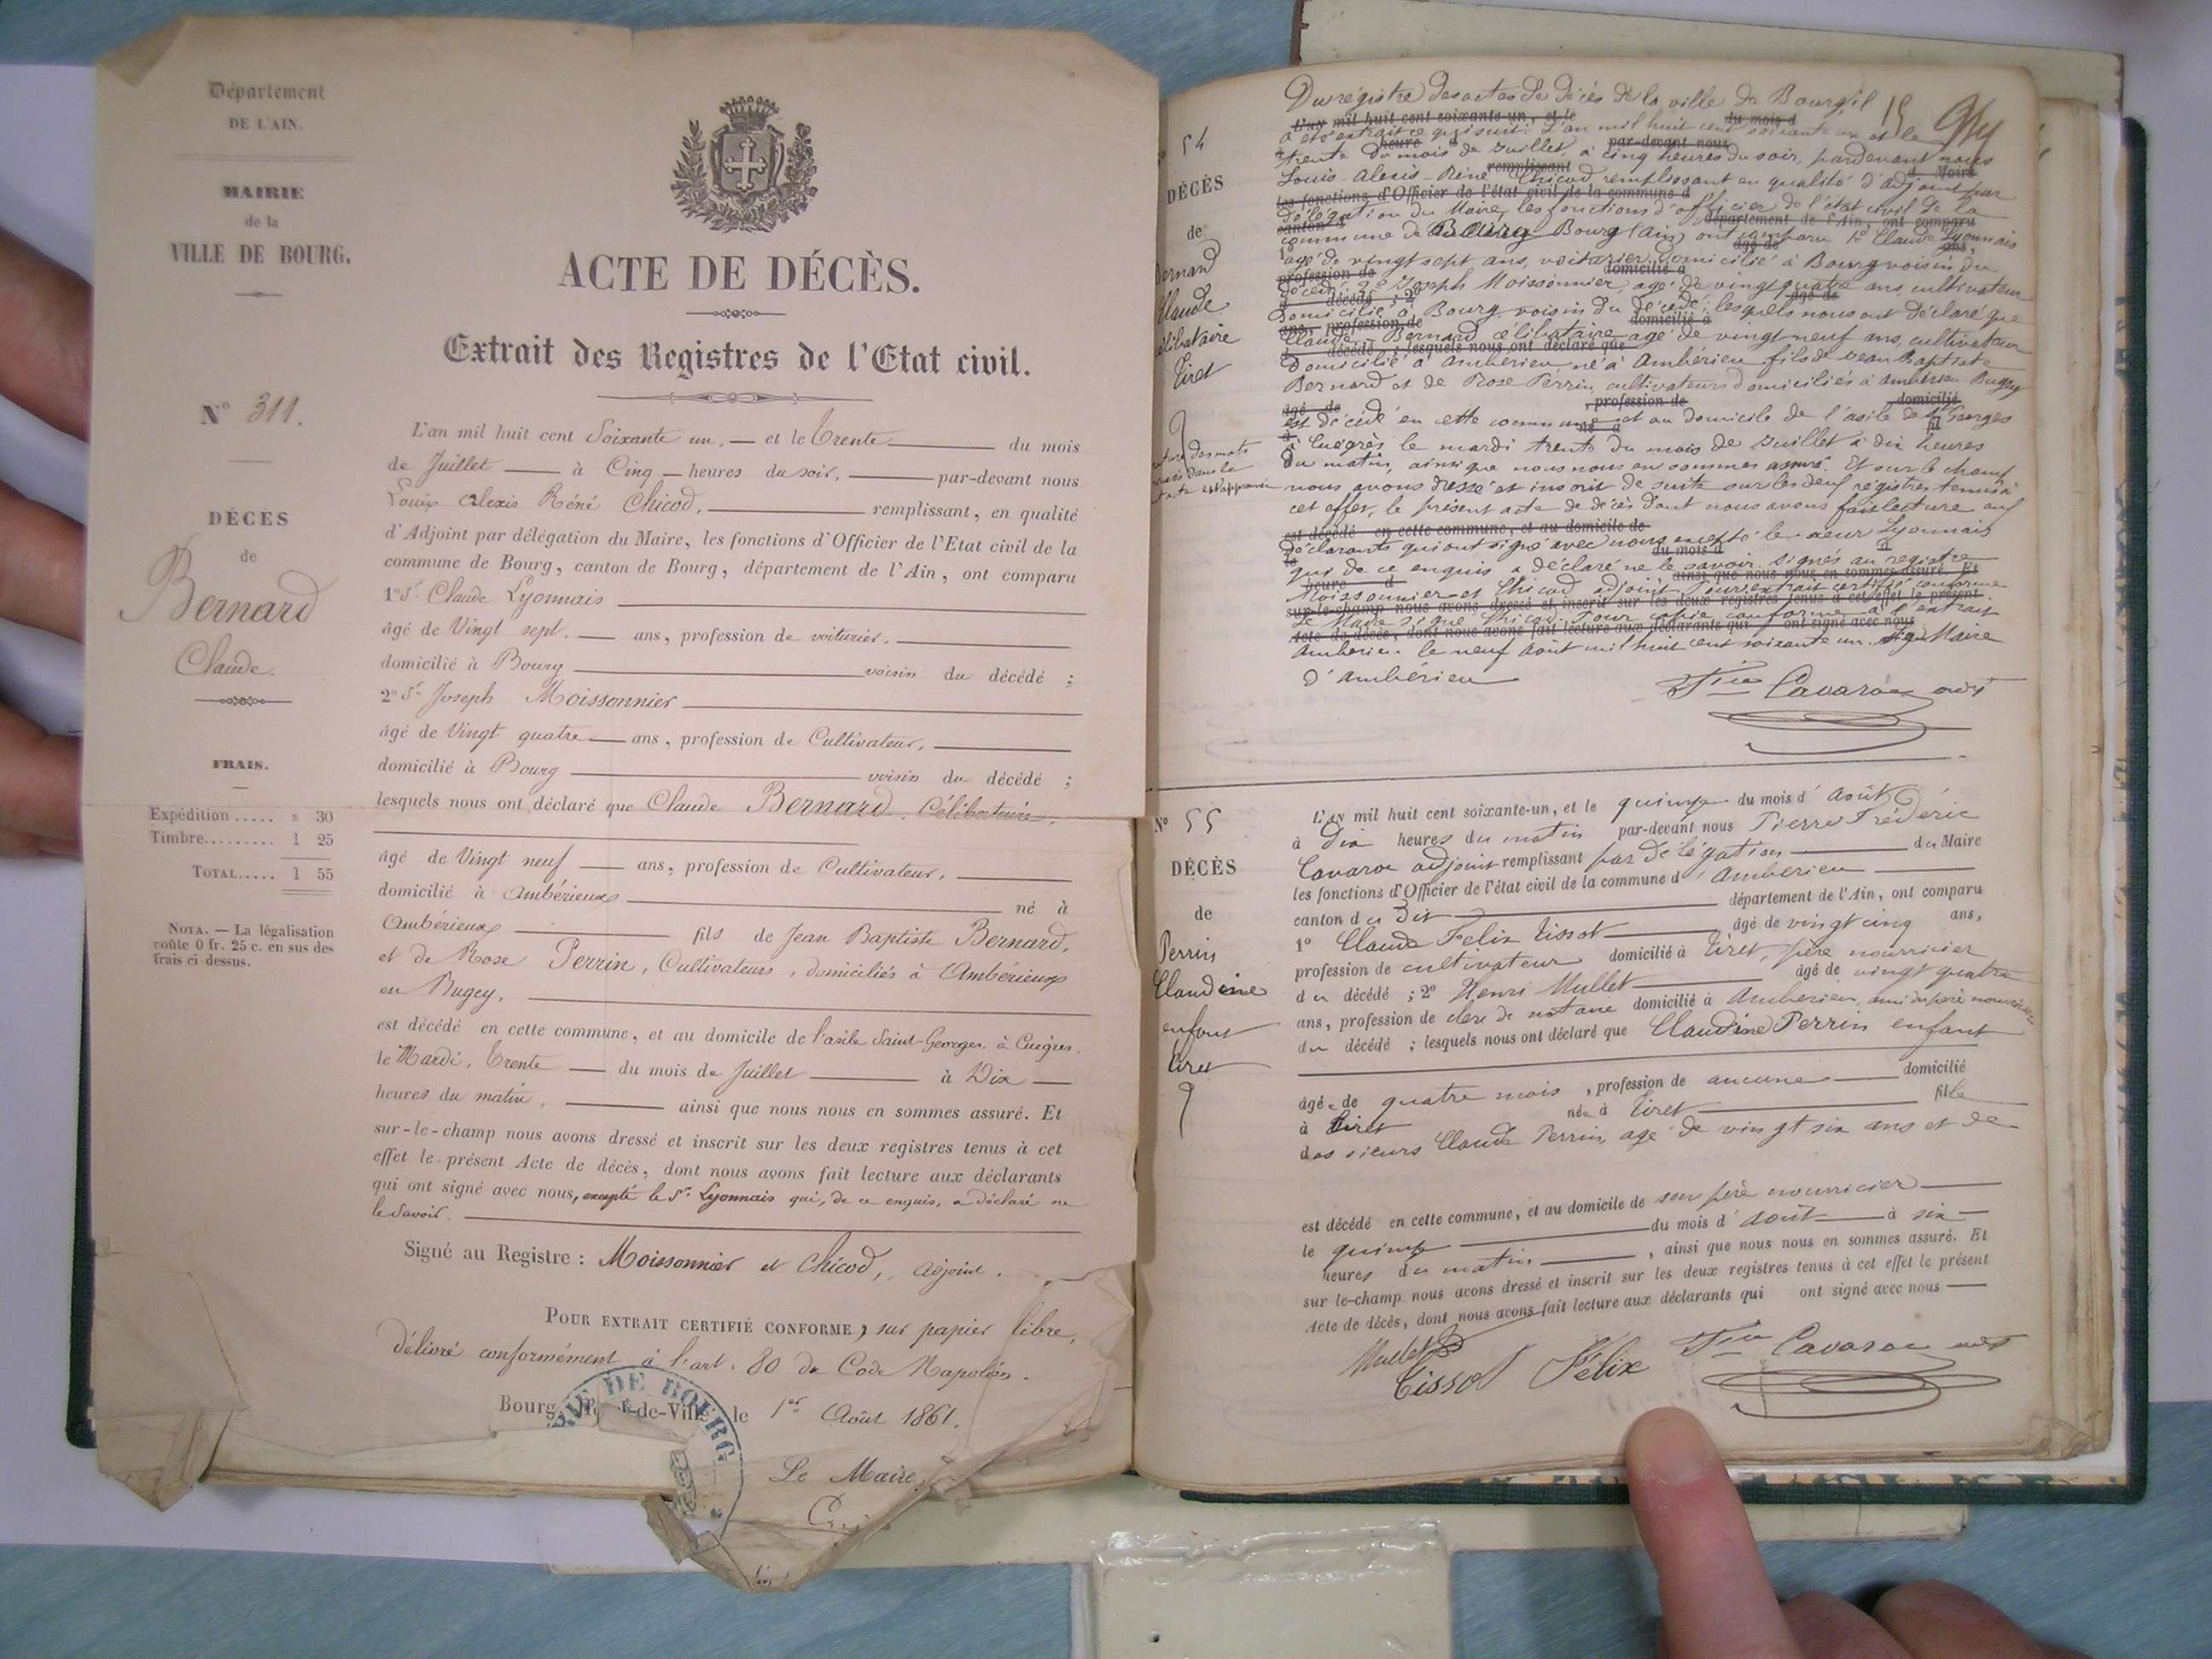 Département
DE L'AIN.
MAIRIE
de la
VILLE DE BOURG.
ACTE DE DÉCÈS.
Extrait des Registres de l'Etat civil.
N° 311.
DÉCÈS
de
Bernard
Claude.
FRAIS.
Expédition ..... » 30
Timbre......... 1 25
TOTAL..... 1 55
NOTA. — La légalisation
coûte 0 fr. 25 c. en sus des
frais ci-dessus.
L'an mil huit cent Soixante un, — et le Trente — du mois
de Juillet — à Cinq — heures du soir, — par-devant nous
Louis Alexis Réné Chicod, — remplissant, en qualité
d'Adjoint par délégation du Maire, les fonctions d'Officier de l'Etat civil de la
commune de Bourg, canton de Bourg, département de l'Ain, ont comparu
1° Sr. Claude Lyonnais
âgé de Vingt sept. — ans, profession de voiturier,
domicilié à Bourg — voisin du décédé ;
2° Sr. Joseph Moissonnier
âgé de Vingt quatre — ans, profession de Cultivateur,
domicilié à Bourg — voisin du décédé ;
lesquels nous ont déclaré que Claude Bernard, Célibataire,
âgé de Vingt neuf — ans, profession de Cultivateur,
domicilié à Ambérieux — né à
Ambérieux — fils de Jean Baptiste Bernard,
et de Rose Perrin, Cultivateurs, domiciliés à Ambérieux
en Bugey,
est décédé en cette commune, et au domicile de l'asile Saint-Georges, à Cuègres.
le Mardi, Trente — du mois de Juillet — à Dix —
heures du matin, — ainsi que nous nous en sommes assuré. Et
sur-le-champ nous avons dressé et inscrit sur les deux registres tenus à cet
effet le présent Acte de décès, dont nous avons fait lecture aux déclarants
qui ont signé avec nous, excepté le Sr. Lyonnais qui, de ce enquis, a déclaré ne
le savoir.
Signé au Registre : Moissonnier et Chicod, adjoint.
POUR EXTRAIT CERTIFIÉ CONFORME, sur papier libre,
délivré conformément à l'art. 80 du Code Napoléon.
Bourg, de-Ville, le 1er Août 1861.
Le Maire,
DE BOURG
54
DÉCÈS
de
Bernard
Claude
célibataire
Tiret
Du registre des actes de décès de la ville de Bourg, il 15
L'an mil huit cent soixante-un, et le du mois d
a été extrait ce qui suit : L'an mil huit cent soixante un et le
heure par-devant nous
trente du mois de Juillet, à cinq heures du soir, pardevant nous
remplissant d Maire
Louis-Alexis-Réné Chicod remplissant en qualité d'adjoint par
les fonctions d'Officier de l'état civil de la commune d
délégation du Maire, les fonctions d'officier de l'état civil de la
canton d département de l'Ain, ont comparu
commune de Bourg Bourg (Ain) ont comparu 1° Claude Lyonnais
âgé de ans,
agé de vingt sept ans, voiturier, domicilié à Bourg voisin du
profession de domicilié à
décédé ; 2° Joseph Moissonnier, agé de vingt quatre ans, cultivateur
décédé ; 2° âgé de
domicilié à Bourg, voisin du décédé ; lesquels nous ont déclaré que
ans, profession de domicilié à
Claude Bernard célibataire agé de vingt neuf ans, cultivateur
décédé ; lesquels nous ont déclaré que
domicilié à Ambérieu, né à Ambérieu, fils de Jean Baptiste
Bernard et de Rose Perrin, cultivateurs domiciliés à Ambérieu Bugey
âgé de , profession de domicilié
est décédé en cette commune et au domicile de l'asile de St Georges
à né à fil
à Cuègrès le mardi trente du mois de Juillet à dix heures
du matin, ainsi que nous nous en sommes assuré. Et sur le champ
nous avons dressé et inscrit de suite sur les deux registres tenus à
cet effet, le présent acte de décès dont nous avons fait lecture aux
est décédé en cette commune, et au domicile de
déclarants qui ont signé avec nous excepté le sieur Lyonnais
le du mois d à
qui de ce enquis a déclaré ne le savoir. Signés au registre
heure d ainsi que nous nous en sommes assuré. Et
Moissonnier et Chicod adjoint. Pour extrait certifié conforme
sur-le-champ nous avons dressé et inscrit sur les deux registres tenus à cet effet le présent
Le Maire signé Chicod. Pour copie conforme à l'extrait
acte de décès, dont nous avons fait lecture aux déclarants qui ont signé avec nous
Ambérieu le neuf Aout mil huit cent soixante un. Maire
d'Ambérieu
Fric Cavaroc adjt
N° 55
DÉCÈS
de
Perrin
Claudine
enfant
Tiret
L'AN mil huit cent soixante-un, et le quinze du mois d'Août
à Dix heures du matin par-devant nous Pierre Frédéric
Cavaroc adjoint remplissant par délégation — du Maire
les fonctions d'Officier de l'état civil de la commune d'Ambérieu
canton du Dit — département de l'Ain, ont comparu
1° Claude Felix Tissot — âgé de vingt cinq ans,
profession de cultivateur domicilié à Tiret, père nourricier
du décédé ; 2° Henri Mullet — âgé de vingt quatre
ans, profession de clerc de notaire domicilié à Ambérieu, ami du père nourricier
du décédé ; lesquels nous ont déclaré que Claudine Perrin enfant
âgée de quatre mois , profession de aucune — domicilié
à Tiret née à Tiret — fille
des sieurs Claude Perrin, agé de vingt six ans et de
est décédé en cette commune, et au domicile de son père nourricier
le quinze — du mois d'Août — à six —
heures du matin — , ainsi que nous nous en sommes assuré. Et
sur le-champ nous avons dressé et inscrit sur les deux registres tenus à cet effet le présent
Acte de décès, dont nous avons fait lecture aux déclarants qui ont signé avec nous —
Mullet
Tissot Félix
Fric Cavaroc adjt